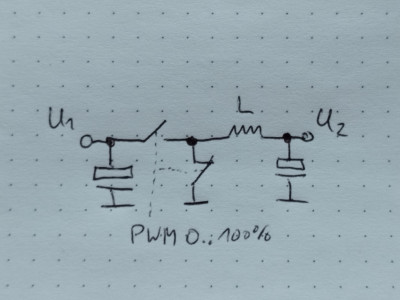 U1
L
U2
PWM 0..100%